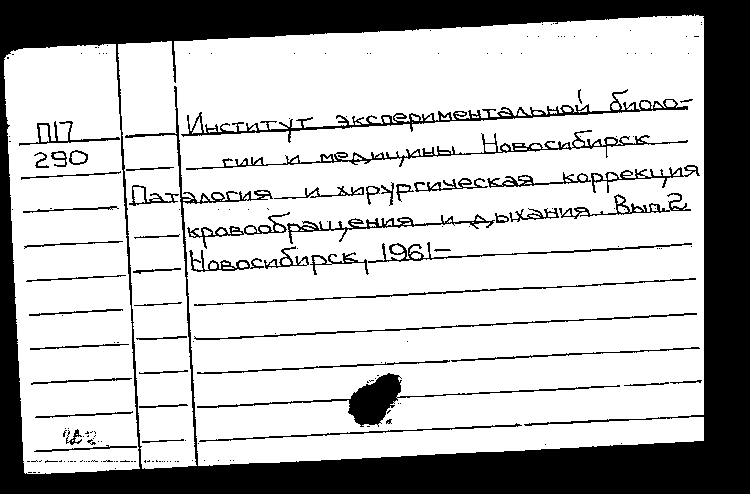 П17
290
Институт экспериментальной биоло-
гии и медицины. Новосибирск
Паталогия и хирургическая коррекция
кровообращения и дыхания. Вып.2
Новосибирск, 1961-